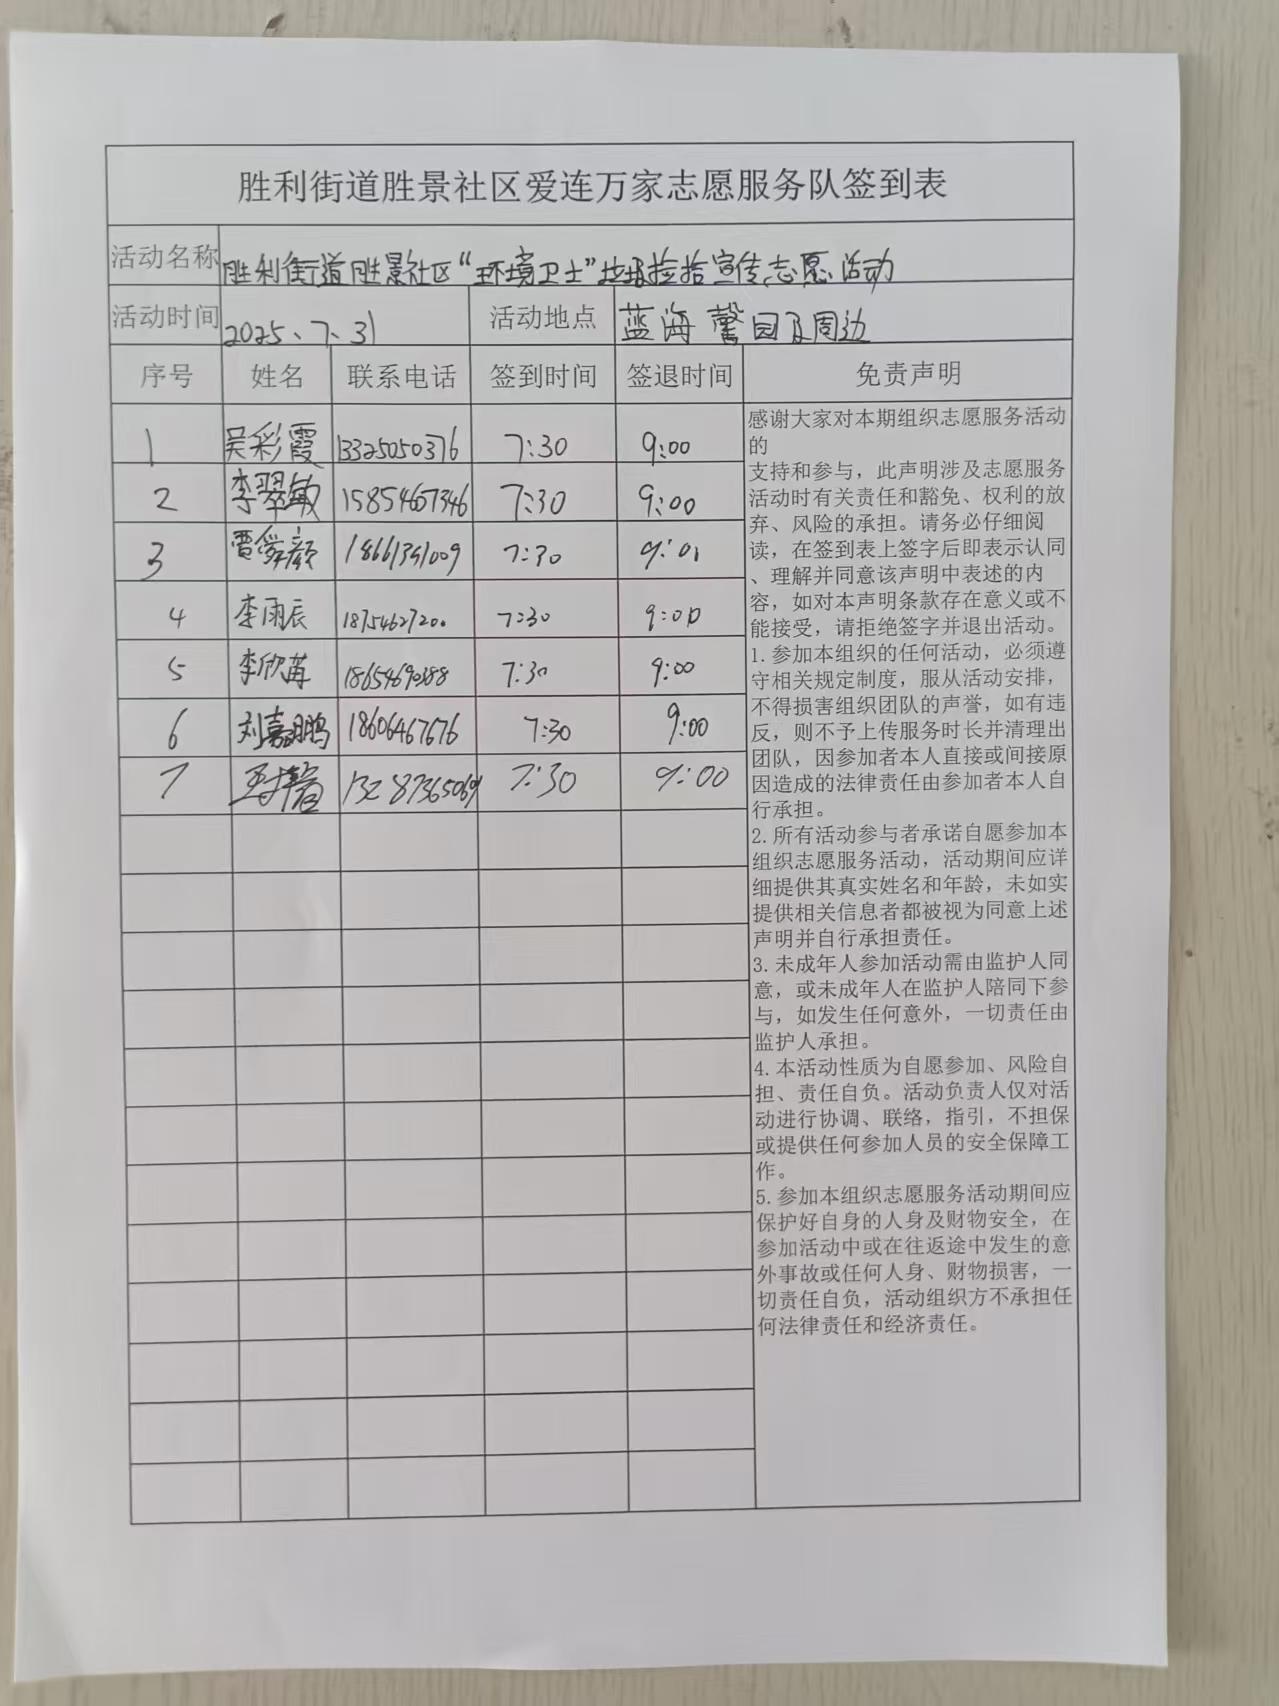 胜利街道胜景社区爱连万家志愿服务队签到表
活动名称 胜利街道胜景社区“环境卫士”垃圾捡拾宣传志愿活动
活动时间 2025、7、31 活动地点 蓝海馨园及周边
序号 姓名 联系电话 签到时间 签退时间 免责声明
1 吴彩霞 13325050376 7:30 9:00
2 李翠敏 15854667346 7:30 9:00
3 7:30 9:01
4 李雨辰 18754627200 7:30 9:00
5 李欣苒 7:30 9:00
6 刘嘉鹏 18606467676 7:30 9:00
7 13287365069 7:30 9:00
感谢大家对本期组织志愿服务活动
的
支持和参与，此声明涉及志愿服务
活动时有关责任和豁免、权利的放
弃、风险的承担。请务必仔细阅
读，在签到表上签字后即表示认同
、理解并同意该声明中表述的内
容，如对本声明条款存在意义或不
能接受，请拒绝签字并退出活动。
1.参加本组织的任何活动，必须遵
守相关规定制度，服从活动安排，
不得损害组织团队的声誉，如有违
反，则不予上传服务时长并清理出
团队，因参加者本人直接或间接原
因造成的法律责任由参加者本人自
行承担。
2.所有活动参与者承诺自愿参加本
组织志愿服务活动，活动期间应详
细提供其真实姓名和年龄，未如实
提供相关信息者都被视为同意上述
声明并自行承担责任。
3.未成年人参加活动需由监护人同
意，或未成年人在监护人陪同下参
与，如发生任何意外，一切责任由
监护人承担。
4.本活动性质为自愿参加、风险自
担、责任自负。活动负责人仅对活
动进行协调、联络，指引，不担保
或提供任何参加人员的安全保障工
作。
5.参加本组织志愿服务活动期间应
保护好自身的人身及财物安全，在
参加活动中或在往返途中发生的意
外事故或任何人身、财物损害，一
切责任自负，活动组织方不承担任
何法律责任和经济责任。